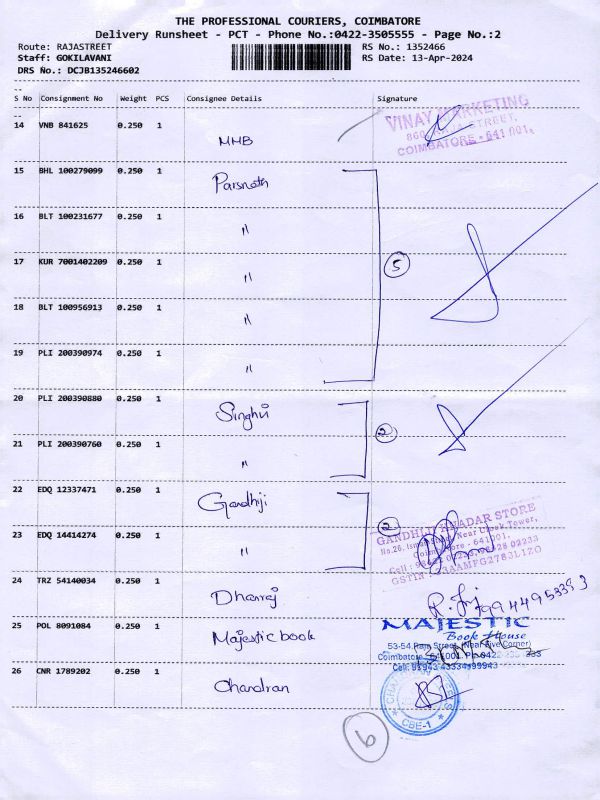 THE PROFESSIONAL COURIERS, COIMBATORE
Delivery Runsheet - PCT - Phone No.:0422-3505555 - Page No.:2
Route: RAJASTREET
RS No.: 1352466
Staff: GOKILAVANI
RS Date: 13-Apr-2024
DRS No.: DCJB135246602
S No Consignment No Weight PCS Consignee Details Signature
14 VNB 841625 0.250 1 MMB
VINAY MARKETING
STREET,
COIMBATORE - 641 001.
15 BHL 100279099 0.250 1 Parsnath
16 BLT 100231677 0.250 1 "
17 KUR 7001402209 0.250 1 "
5
18 BLT 100956913 0.250 1 "
19 PLI 200390974 0.250 1 "
20 PLI 200390880 0.250 1 Singhvi
2
21 PLI 200390760 0.250 1 "
22 EDQ 12337471 0.250 1 Gandhiji
2
GANDHIJI KHADAR STORE
23 EDQ 14414274 0.250 1 "
Near Clock Tower,
Coimbatore - 641001.
24 TRZ 54140034 0.250 1 Dhanraj
25 POL 8091084 0.250 1 Majestic book
MAJESTIC
Book House
53-54, Ram Street, (Near Five Corner)
Coimbatore - 641001.
26 CNR 1789202 0.250 1 Chandran
CBE-1
6